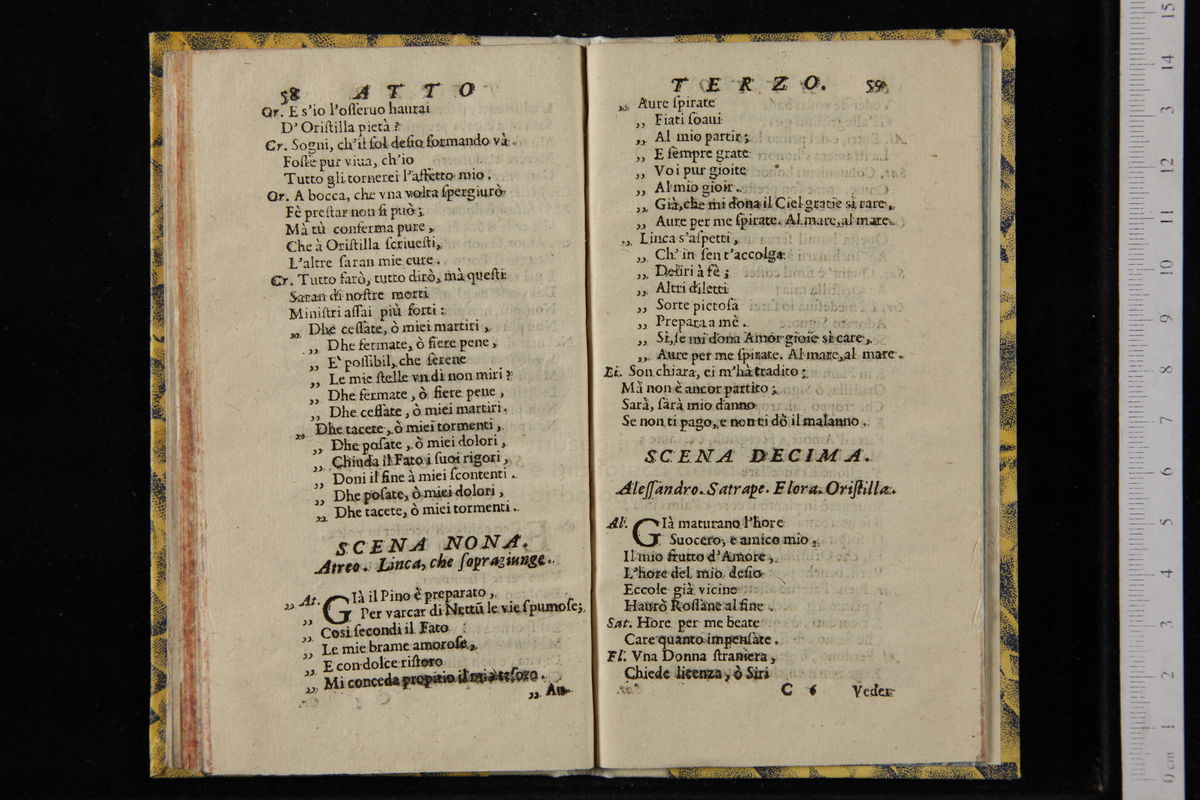 58 ATTO
Or. E s'io l'osseruo haurai
D' Oristilla pietà?
Cr. Sogni, ch'il sol desio formando và.
Fosse pur viua, ch'io
Tutto gli tornerei l'affetto mio.
Or. A bocca, che vna volta spergiurò
Fè prestar non si può;
Mà tù conferma pure,
Che à Oristilla scriuesti,
L'altre saran mie cure.
Cr. Tutto farò, tutto dirò, mà questi
Saran di nostre morti
Ministri assai più forti:
,, Dhe cessate, ò miei martiri,
,, Dhe fermate, ò fiere pene,
,, E' possibil, che serene
,, Le mie stelle vn dì non miri?
,, Dhe fermate, ò fiere pene,
,, Dhe cessate, ò miei martiri.
,, Dhe tacete, ò miei tormenti,
,, Dhe posate, ò miei dolori,
,, Chiuda il Fato i suoi rigori,
,, Doni il fine à miei scontenti.
,, Dhe posate, ò miei dolori,
,, Dhe tacete, ò miei tormenti.
SCENA NONA.
Atreo. Linca, che sopragiunge.
,, At. Già il Pino è preparato,
,, Per varcar di Nettũ le vie spumose;
,, Così secondi il Fato
,, Le mie brame amorose,
,, E con dolce ristoro
,, Mi conceda propitio il mio tesoro.
,, Au-
TERZO. 59
,, Aure spirate
,, Fiati soaui
,, Al mio partir;
,, E sempre grate
,, Voi pur gioite
,, Al mio gioir.
,, Già, che mi dona il Ciel gratie sì rare,
,, Aure per me spirate. Al mare, al mare.
,, Linca s'aspetti,
,, Ch' in sen t'accolga
,, Desiri à fè;
,, Altri diletti
,, Sorte pietosa
,, Prepara a mè.
,, Sì, se mi dona Amor gioie sì care,
,, Aure per me spirate. Al mare, al mare.
Li. Son chiara, ei m'hà tradito;
Mà non è ancor partito;
Sarà, sarà mio danno
Se non ti pago, e non ti dò il malanno.
SCENA DECIMA.
Alessandro. Satrape. Elora. Oristilla.
Al. Già maturano l'hore
Suocero, e amico mio,
Il mio frutto d'Amore,
L'hore del mio desio
Eccole già vicine
Haurò Rossane al fine.
Sat. Hore per me beate
Care quanto impensate.
El. Vna Donna straniera,
Chiede licenza, ò Siri
C 6 Veder